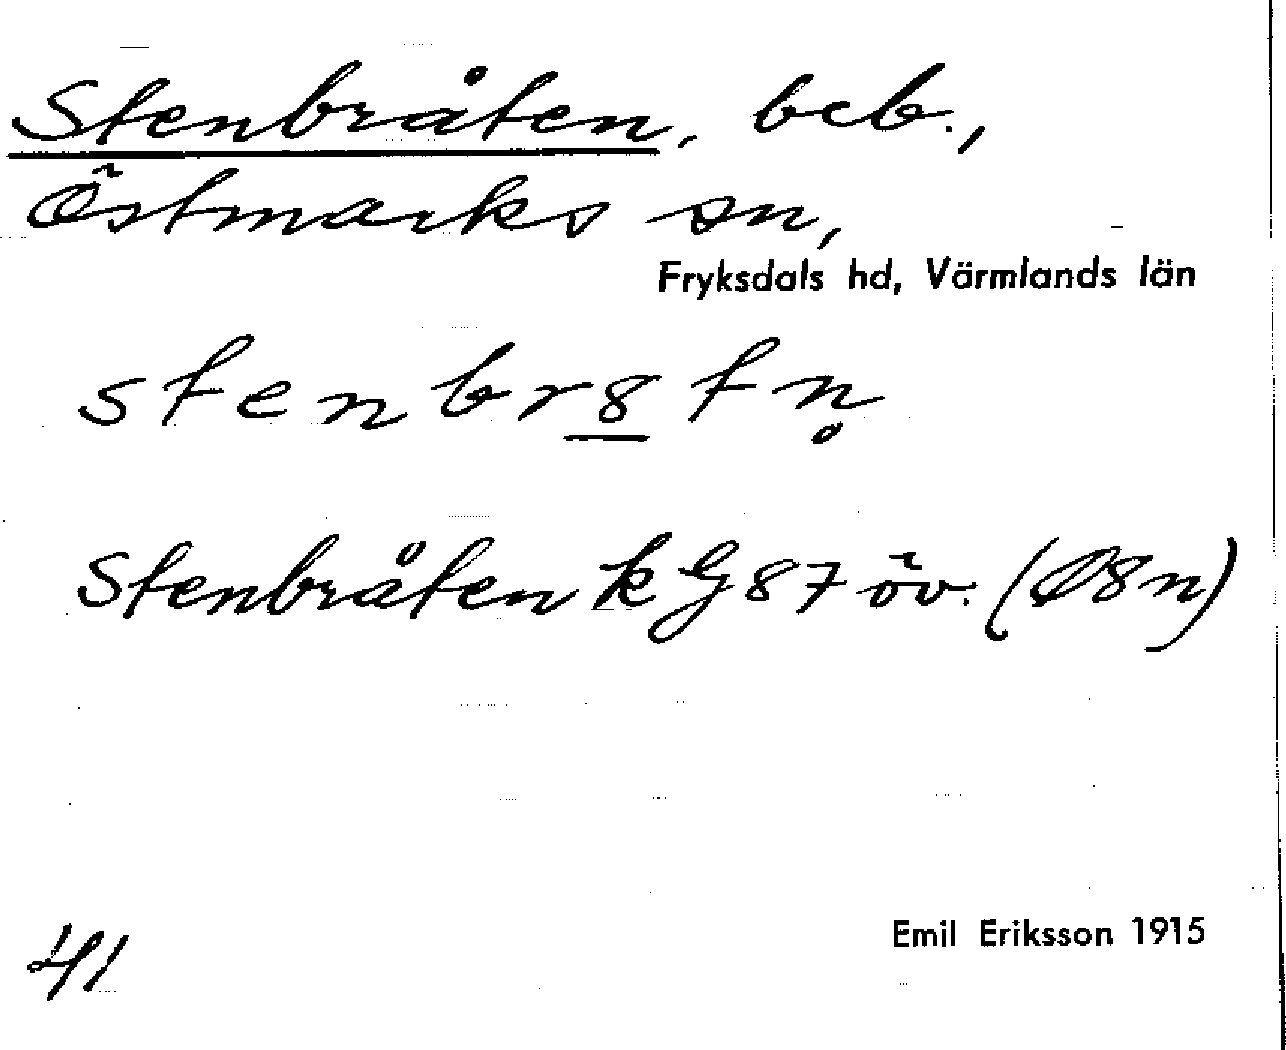 Stenbråten, beb.,
Östmarks sn,
Fryksdals hd, Värmlands län
stenbr8tn̥
Stenbråten k G 87 öv. (Ø8n)
41
Emil Eriksson 1915